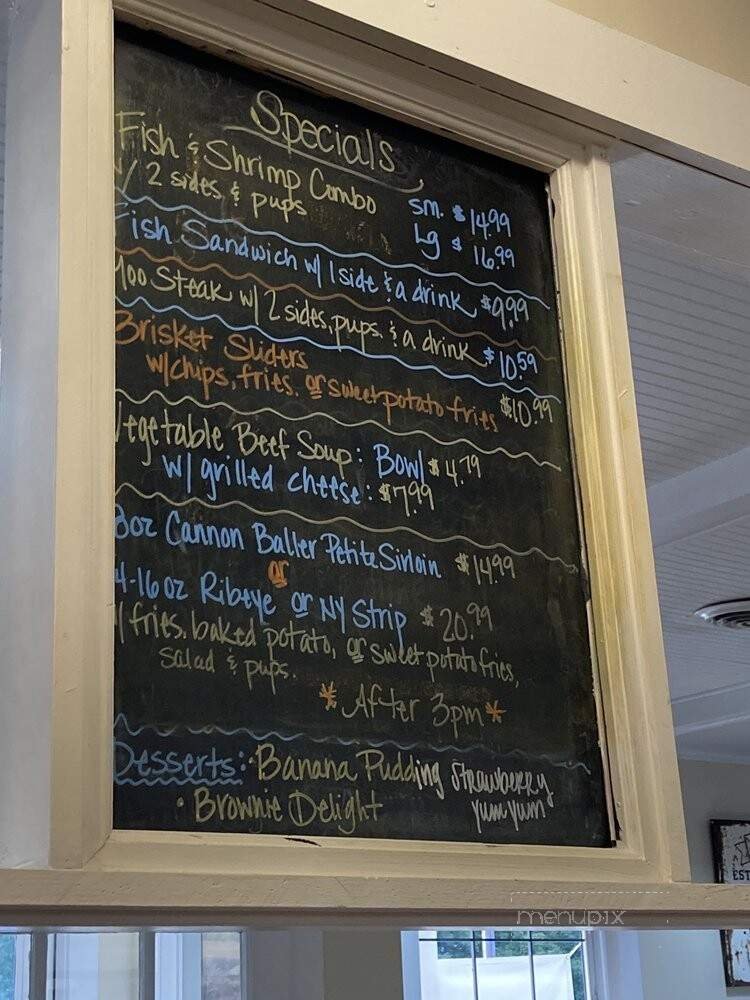 Specials
Fish & Shrimp Combo
w/ 2 sides & pups
sm. $14.99
Lg $16.99
Fish Sandwich w/ 1 side & a drink $9.99
Moo Steak w/ 2 sides, pups & a drink $10.59
Brisket Sliders
w/chips, fries. or sweet potato fries $10.99
Vegetable Beef Soup: Bowl $4.79
w/ grilled cheese: $7.99
8oz Cannon Baller Petite Sirloin $14.99
or
14-16oz Ribeye or NY Strip $20.99
w/ fries. baked potato, or sweet potato fries,
salad & pups.
*After 3pm*
Desserts: • Banana Pudding Strawberry
• Brownie Delight yum yum
menupix